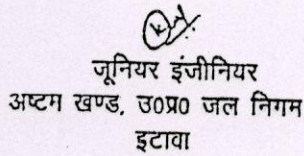 जूनियर इंजीनियर
अष्टम खण्ड, उ०प्र० जल निगम
इटावा